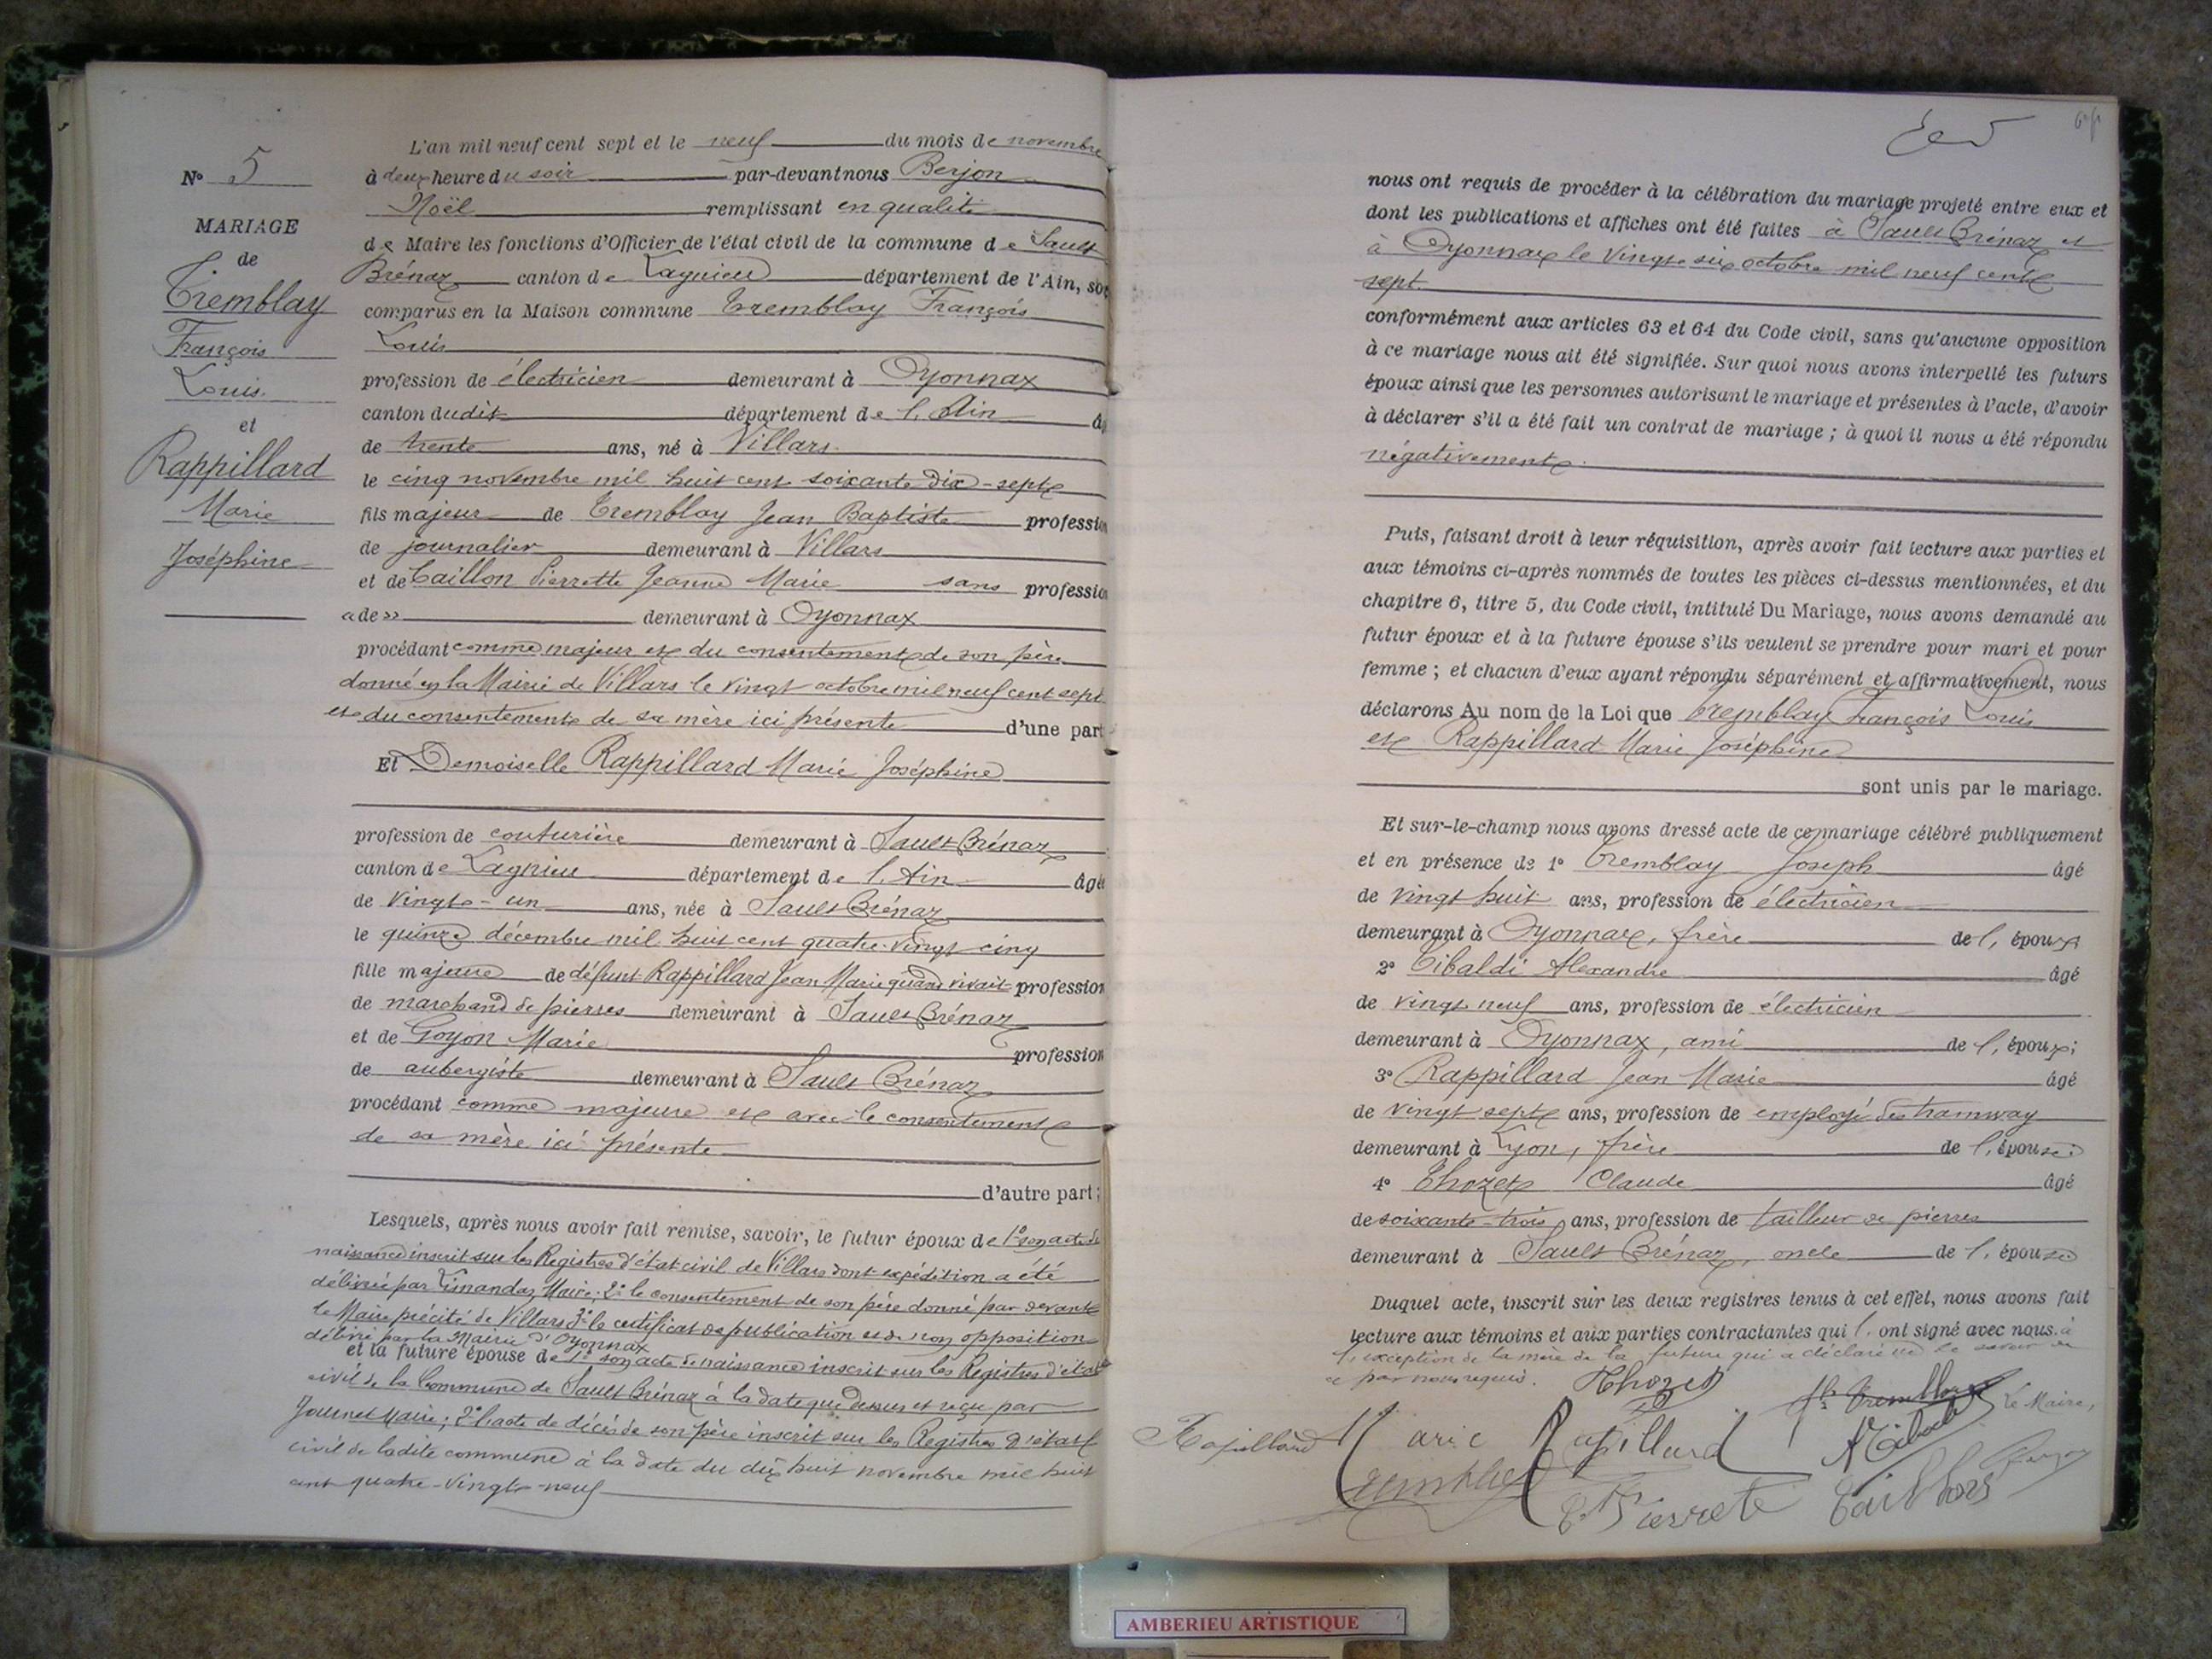 N° 5
MARIAGE
de
Tremblay
François
Louis
et
Rappillard
Marie
Joséphine
L'an mil neuf cent sept et le neuf du mois de novembre
à deux heure du soir par-devant nous Berjon
Noël remplissant en qualité
de Maire les fonctions d'Officier de l'état civil de la commune de Sault
Brénaz canton de Lagnieu département de l'Ain, sont
comparus en la Maison commune Tremblay François
Louis
profession de électricien demeurant à Oyonnax
canton dudit département de l'Ain
de trente ans, né à Villars
le cinq novembre mil huit cent soixante dix-sept
fils majeur de Tremblay Jean Baptiste profession
de journalier demeurant à Villars
et de Taillon Pierrette Jeanne Marie sans profession
« de » demeurant à Oyonnax
procédant comme majeur et du consentement de son père
donné en la Mairie de Villars le vingt octobre mil neuf cent sept
et du consentement de sa mère ici présente d'une part
Et Demoiselle Rappillard Marie Joséphine
profession de couturière demeurant à Sault Brénaz
canton de Lagnieu département de l'Ain âgée
de vingt-un ans, née à Sault Brénaz
le quinze décembre mil huit cent quatre-vingt cinq
fille majeure de défunt Rappillard Jean Marie quand vivait profession
de marchand de pierres demeurant à Sault Brénaz
et de Goyon Marie profession
de aubergiste demeurant à Sault Brénaz
procédant comme majeure et avec le consentement
de sa mère ici présente
d'autre part ;
Lesquels, après nous avoir fait remise, savoir, le futur époux de 1° son acte de
naissance inscrit sur les Registres d'état civil de Villars dont expédition a été
délivrée par Limandas, Maire; 2° le consentement de son père donné par devant
le Maire précité de Villars 3° le certificat de publication et de non opposition
délivré par la Mairie d'Oyonnax
et la future épouse de 1° son acte de naissance inscrit sur les Registres d'état
civil de la Commune de Sault Brénaz à la date que dessus et reçu par
Journet Maire; 2° l'acte de décès de son père inscrit sur les Registres d'état
civil de ladite commune à la date du dix huit novembre mil huit
cent quatre-vingt-neuf
nous ont requis de procéder à la célébration du mariage projeté entre eux et
dont les publications et affiches ont été faites à Sault Brénaz et
à Oyonnax le vingt six octobre mil neuf cent
sept
conformément aux articles 63 et 64 du Code civil, sans qu'aucune opposition
à ce mariage nous ait été signifiée. Sur quoi nous avons interpellé les futurs
époux ainsi que les personnes autorisant le mariage et présentes à l'acte, d'avoir
à déclarer s'il a été fait un contrat de mariage ; à quoi il nous a été répondu
négativement.
Puis, faisant droit à leur réquisition, après avoir fait lecture aux parties et
aux témoins ci-après nommés de toutes les pièces ci-dessus mentionnées, et du
chapitre 6, titre 5, du Code civil, intitulé Du Mariage, nous avons demandé au
futur époux et à la future épouse s'ils veulent se prendre pour mari et pour
femme ; et chacun d'eux ayant répondu séparément et affirmativement, nous
déclarons Au nom de la Loi que Tremblay François Louis
et Rappillard Marie Joséphine
sont unis par le mariage.
Et sur-le-champ nous avons dressé acte de ce mariage célébré publiquement
et en présence de 1° Tremblay Joseph âgé
de vingt huit ans, profession de électricien
demeurant à Oyonnax, frère de l'époux
2° Tibaldi Alexandre âgé
de vingt neuf ans, profession de électricien
demeurant à Oyonnax, ami de l'époux;
3° Rappillard Jean Marie âgé
de vingt sept ans, profession de employé des tramway
demeurant à Lyon, frère de l'épouse
4° Thozet Claude âgé
de soixante-trois ans, profession de tailleur de pierres
demeurant à Sault Brénaz, oncle de l'épouse
Duquel acte, inscrit sur les deux registres tenus à cet effet, nous avons fait
lecture aux témoins et aux parties contractantes qui l'ont signé avec nous à
l'exception de la mère de la future qui a déclaré ne le savoir de
ce par nous requis.
Thozet
Le Maire,
Rapillard
Marie Rapillard
Tremblay
Pierrete
AMBERIEU ARTISTIQUE